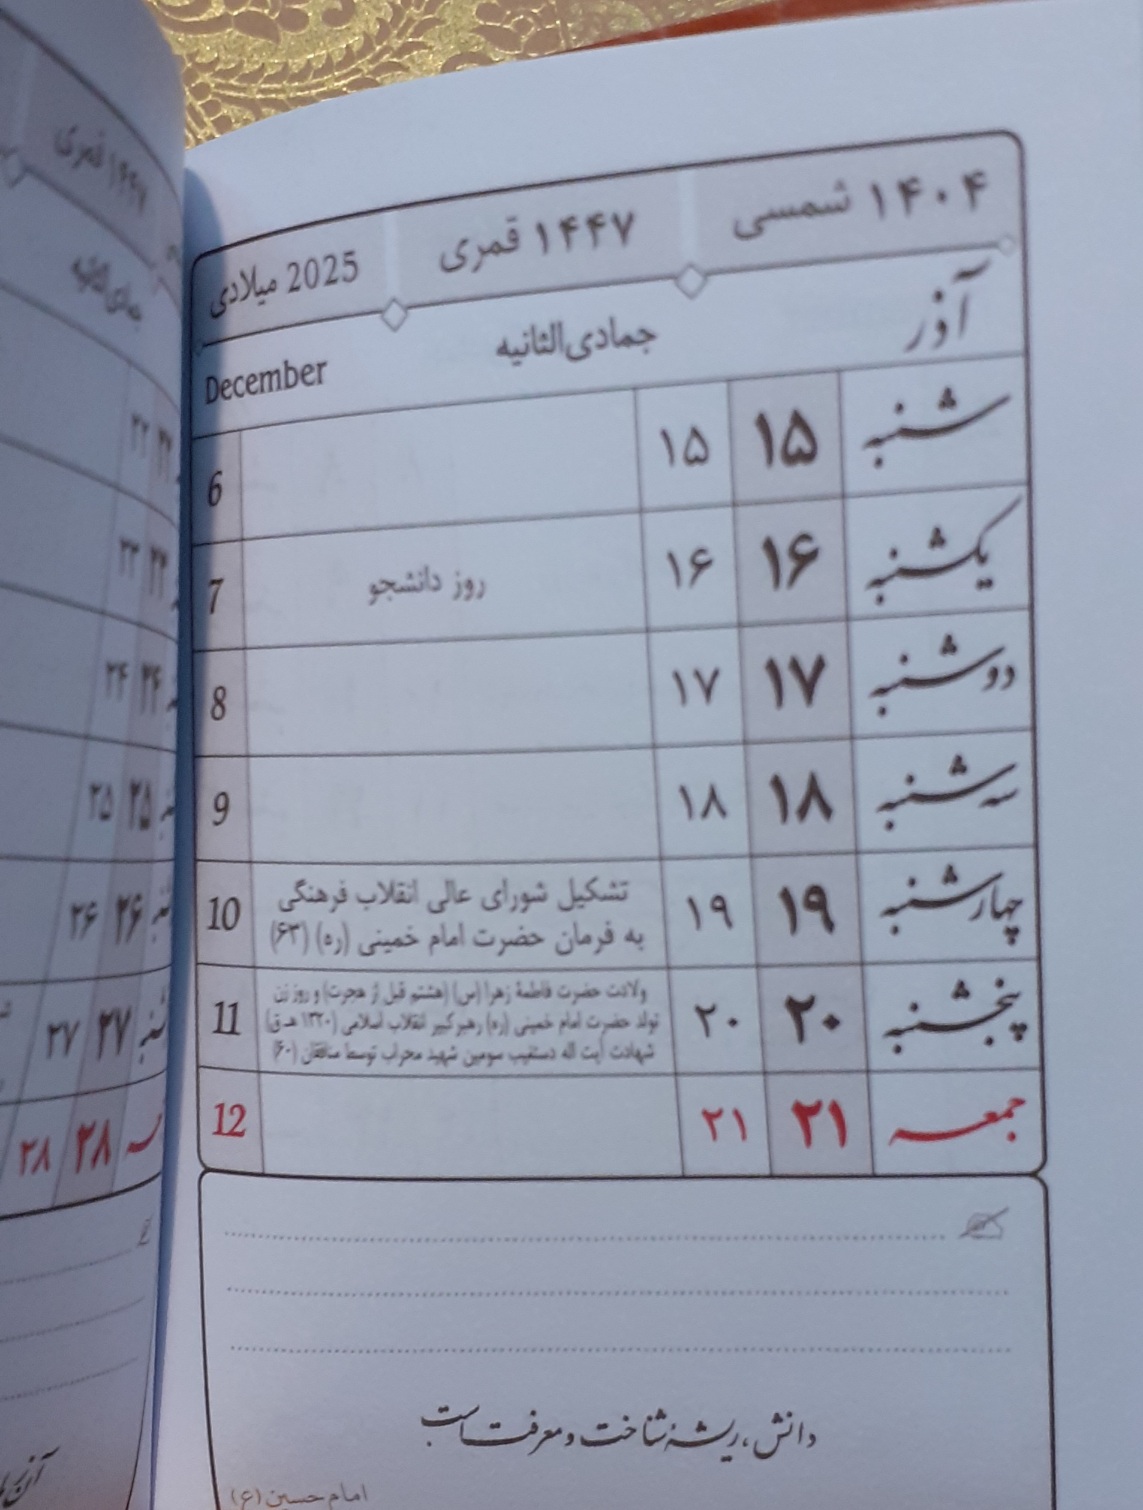 ۱۴۰۴ شمسی
۱۴۴۷ قمری
2025 میلادی
آذر
جمادی‌الثانیه
December
شنبه ۱۵ ۱۵ 6
یکشنبه ۱۶ ۱۶ روز دانشجو 7
دوشنبه ۱۷ ۱۷ 8
سه‌شنبه ۱۸ ۱۸ 9
چهارشنبه ۱۹ ۱۹ تشکیل شورای عالی انقلاب فرهنگی 10
به فرمان حضرت امام خمینی (ره) (۶۳)
پنجشنبه ۲۰ ۲۰ ولادت حضرت فاطمهٔ زهرا (س) (هشتم قبل از هجرت) و روز زن 11
تولد حضرت امام خمینی (ره) رهبر کبیر انقلاب اسلامی (۱۳۲۰ هـ.ق)
شهادت آیت اله دستغیب سومین شهید محراب توسط منافقان (۶۰)
جمعه ۲۱ ۲۱ 12
دانش، ریشهٔ شناخت و معرفت است
امام حسین (ع)
۱۴۴۷ قمری
جمادی‌الثانیه
۲۲ ۲۲
۲۳ ۲۳
۲۴ ۲۴
۲۵ ۲۵
۲۶ ۲۶
۲۷ ۲۷
۲۸ ۲۸